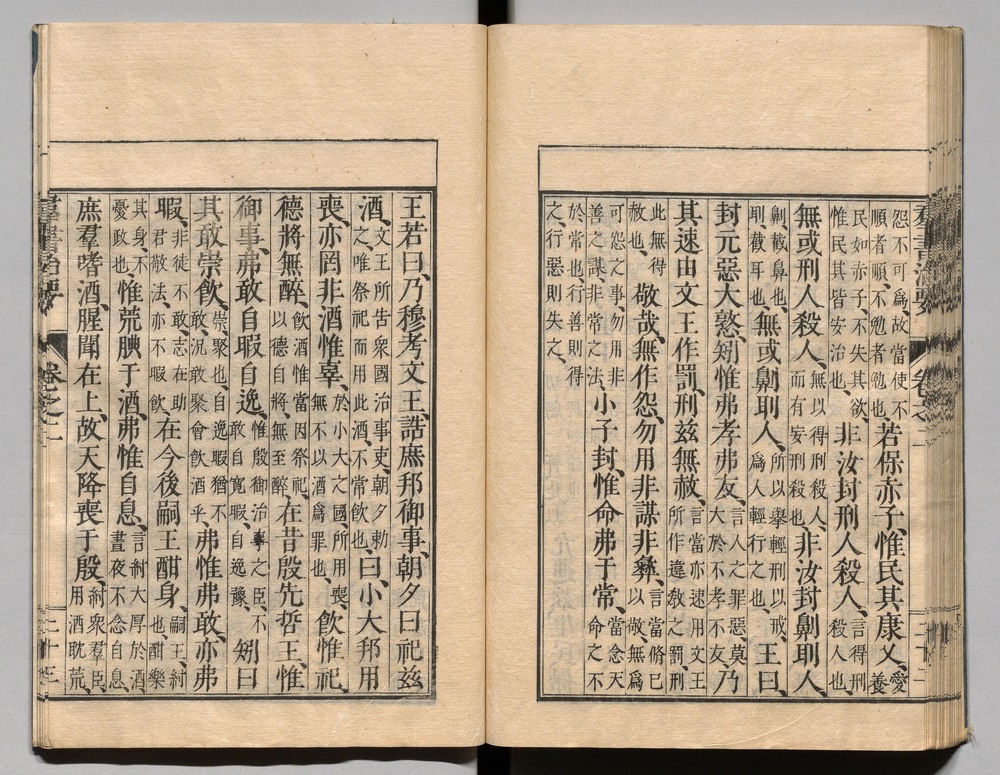 怨不可爲、故當使不順者順、不勉者勉也、若保赤子、惟民其康乂、愛養
民如赤子、不失其欲、惟民其皆安治也、非汝封刑人殺人、言得刑殺人也、
無或刑人殺人、無以得刑殺人、而有妄刑殺也、非汝封劓刵人、
劓截鼻也、刵截耳也、無或劓刵人、所以舉輕刑以戒、爲人輕行之也、王曰、
封元惡大憝、矧惟弗孝弗友、言人之罪惡、莫大於不孝不友、乃
其速由文王作罰、刑茲無赦、言當亦速用文王所作違敎之罰、刑
此無得赦也、敬哉、無作怨、勿用非謀非彝、言當脩己以敬、無爲
可怨之事、勿用非善之謀、非常之法、小子封、惟命弗于常、當念天命之不
於常也、行善則得之、行惡則失之、
羣書治要 卷之二 二十二
王若曰、乃穆考文王、誥庶邦御事、朝夕曰祀茲
酒、文王所告衆國治事吏、朝夕勑之、唯祭祀而用此酒、不常飲也、曰、小大邦用
喪、亦罔非酒惟辜、於小大之國、所用喪、無不以酒爲罪也、飲惟祀、
德將無醉、飲酒惟當因祭祀、以德自將、無至醉、在昔殷先哲王、惟
御事、弗敢自暇自逸、惟殷御治事之臣、不敢自寬暇、自逸豫、矧曰
其敢崇飲、崇聚也、自逸暇猶不敢、況敢聚會飲酒乎、弗惟弗敢、亦弗
暇、非徒不敢、志在助君敬法、亦不暇飲、在今後嗣王酣身、嗣王、紂也、酣樂
其身、不憂政也、惟荒腆于酒、弗惟自息、言紂大厚於酒、晝夜不念自息、
庶羣嗜酒、腥聞在上、故天降喪于殷、紂衆羣臣、用酒耽荒、
羣書治要 卷之二 二十三